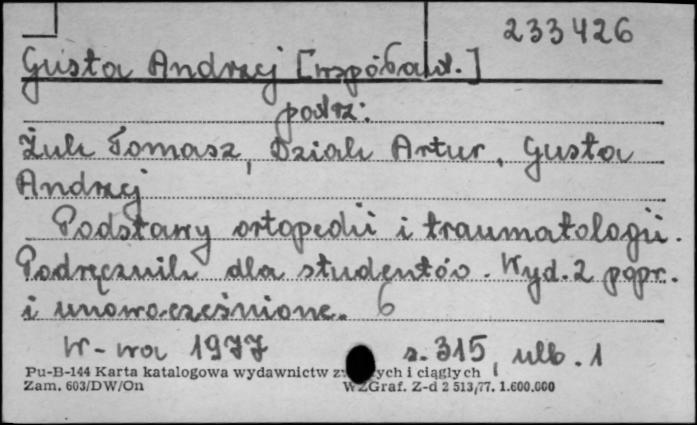 233426
Gusta Andrzej [współaut.]
patrz:
Żuk Tomasz, Dziak Artur, Gusta
Andrzej
Podstawy ortopedii i traumatologii.
Podręcznik dla studentów. Wyd. 2 popr.
i unowocześnione. 6
W-wa 1977 s. 315, nlb. 1
Pu-B-144 Karta katalogowa wydawnictw i ciągłych
Zam. 603/DW/On WZGraf. Z-d 2 513/77. 1.600.000